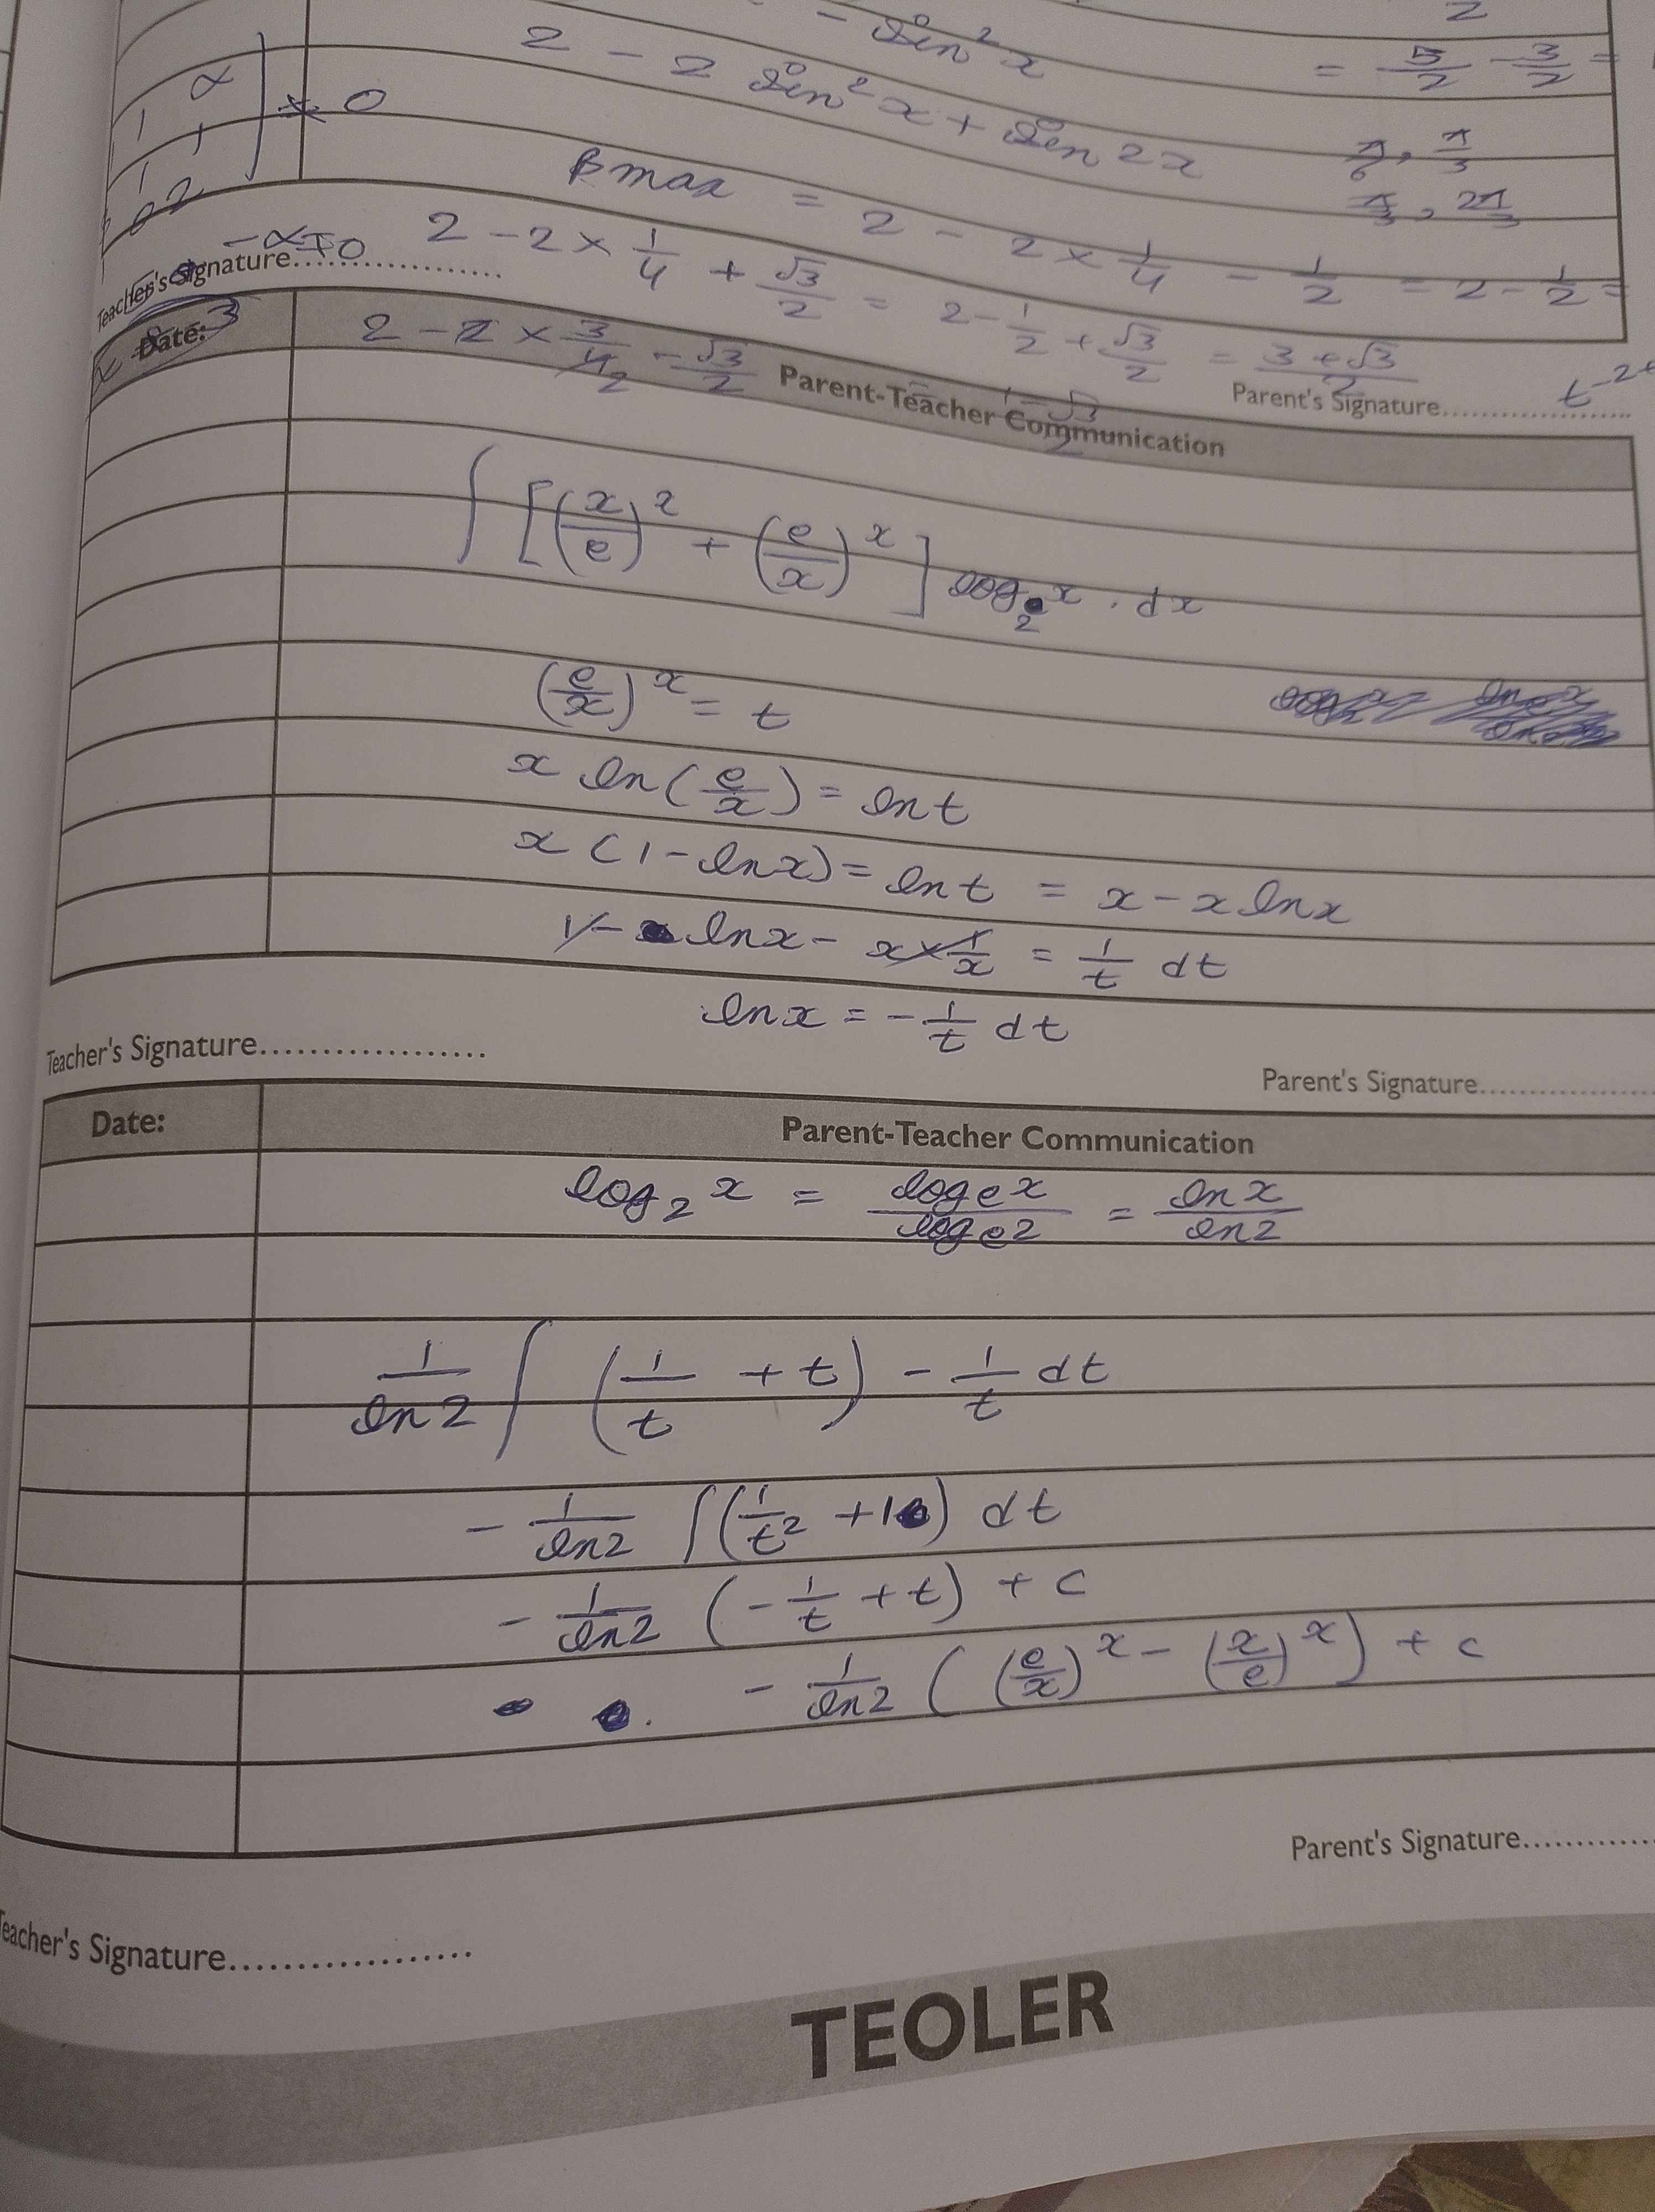 - sin² x
2
= 5/2 - 3/2 =
2 - 2 sin² x + sin 2x
α
1 1
= 0
π/6, π/3
π/3, 2π/3
β max = 2 - 2 × 1/4 - 1/2 = 2 - 1/2 =
-α = 0
2 - 2 × 1/4 + √3/2 = 2 - 1/2 + √3/2 = 3 + √3/2
Teacher's Signature..................
Parent's Signature....................
t⁻²⁺
Date:
3
2 - 2 × 3/4 2 - √3/2
= 1 - √3/2
Parent-Teacher Communication
∫ [(x/e)² + (e/x)ˣ] log₂ x . dx
(e/x)ˣ = t
x ln(e/x) = ln t
x (1 - ln x) = ln t = x - x ln x
1 - ln x - x × 1/x = 1/t dt
ln x = - 1/t dt
Teacher's Signature..................
Parent's Signature................
Date:
Parent-Teacher Communication
log₂ x = logₑ x/logₑ 2 = ln x/ln 2
1/ln 2 ∫ (1/t + t) - 1/t dt
- 1/ln 2 ∫ (1/t² + 1) dt
- 1/ln 2 (- 1/t + t) + c
- 1/ln 2 ((e/x)ˣ - (x/e)ˣ) + c
Parent's Signature.............
Teacher's Signature...................
TEOLER